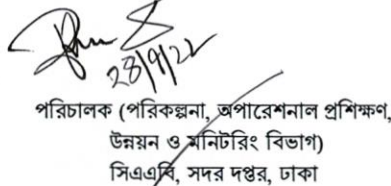 28/9/22
পরিচালক (পরিকল্পনা, অপারেশনাল প্রশিক্ষণ,
উন্নয়ন ও মনিটরিং বিভাগ)
সিএএবি, সদর দপ্তর, ঢাকা